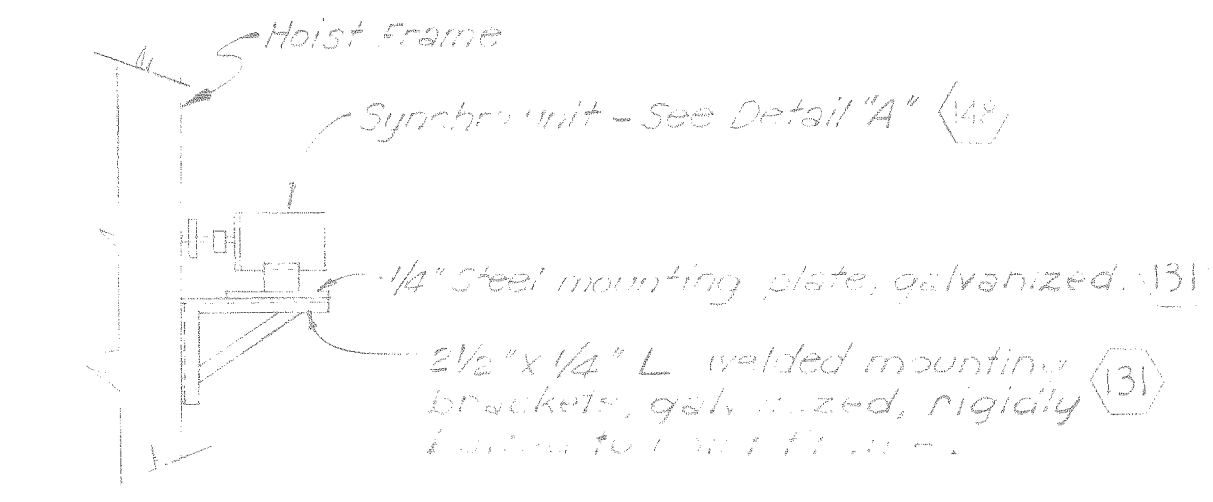 Hoist Frame
Synchro unit - See Detail "A" 148
1/4" Steel mounting plate, galvanized. 131
2 1/2" x 1/4" L welded mounting 131
brackets, galvanized, rigidly
to